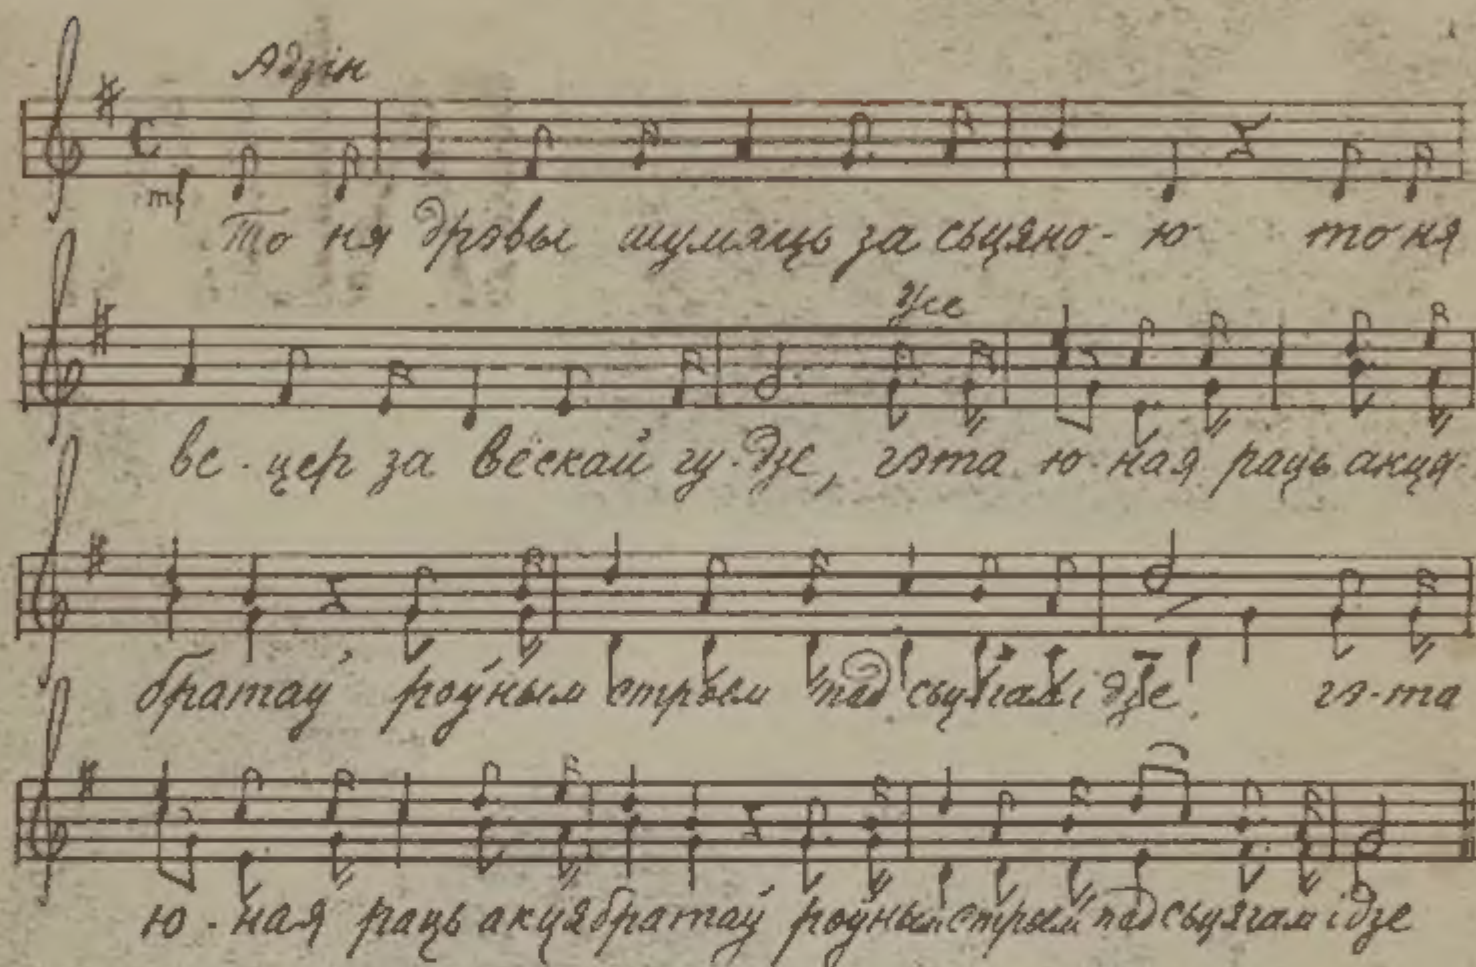 Адзін
mf
То ня дрэвы шумяць за сьцяно-ю то ня
Усе
ве-цер за вёскай гу-дзе, гэта ю-ная раць акця-
братаў роўным строем пад сьцягам ідзе. гэ-та
ю-ная раць акцябратаў роўным строем пад сьцягам ідзе